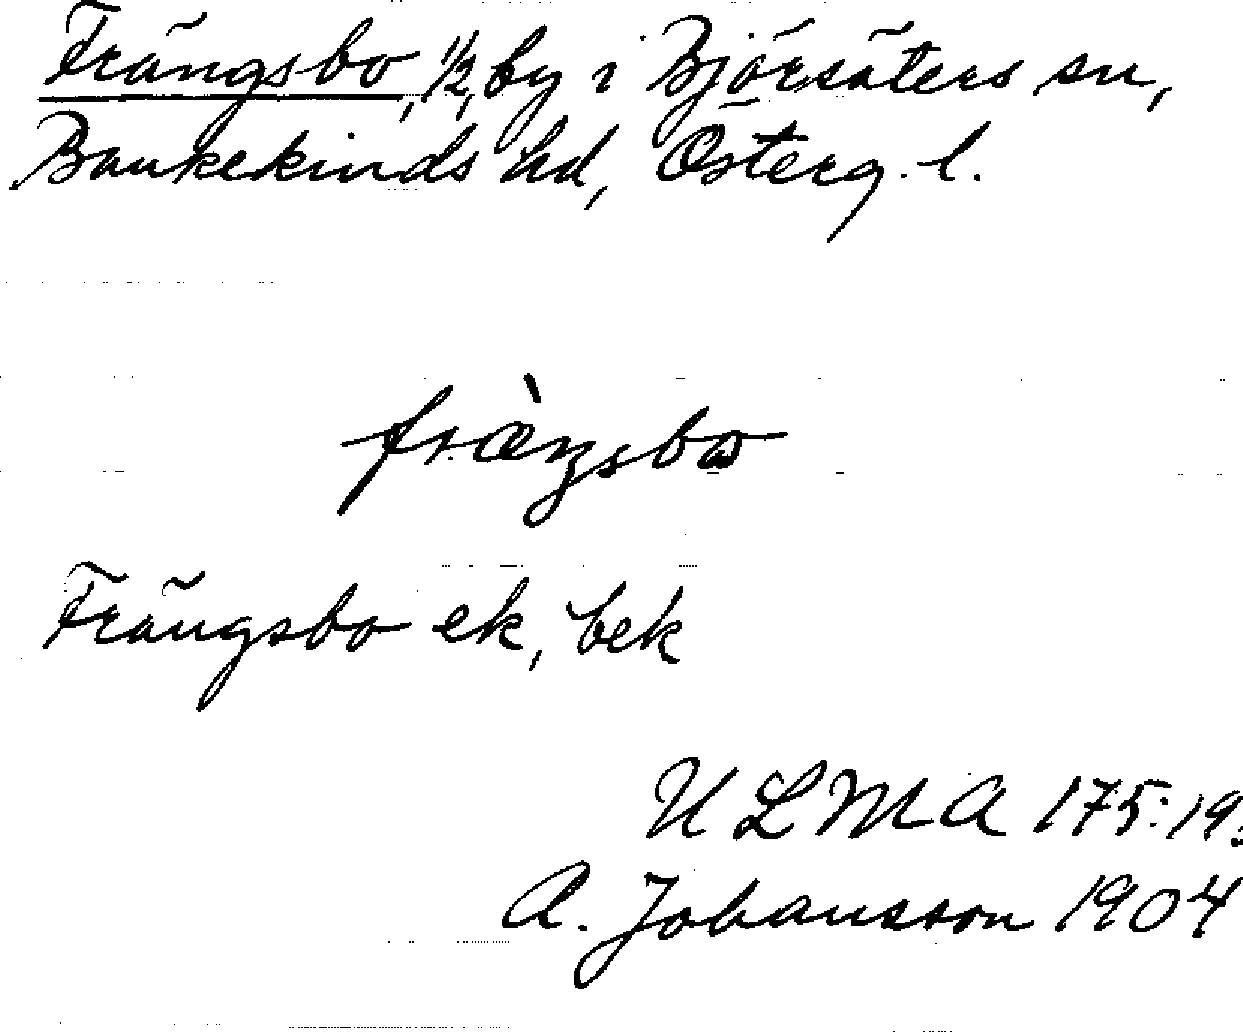 Frängsbo, 1/2, by i Björsäters sn,
Bankekinds hd, Österg. l.
fræ̀ŋsbω
Frängsbo ek, bek
ULMA 175:19
A. Johansson 1904